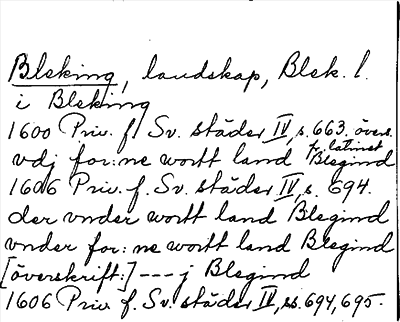 Bleking, landskap, Blek. l.
i Bleking
1600 Priv. f. Sv. städer IV, s. 663. övers.
fr. latinet
vdj for:ne wortt land Blegind
1606 Priv. f. Sv. städer IV, s. 694.
der vnder wortt land Blegind
vnder for:ne wortt land Blegind
[överskrift:] --- j Blegind
1606 Priv. f. Sv. städer IV, ss. 694, 695.